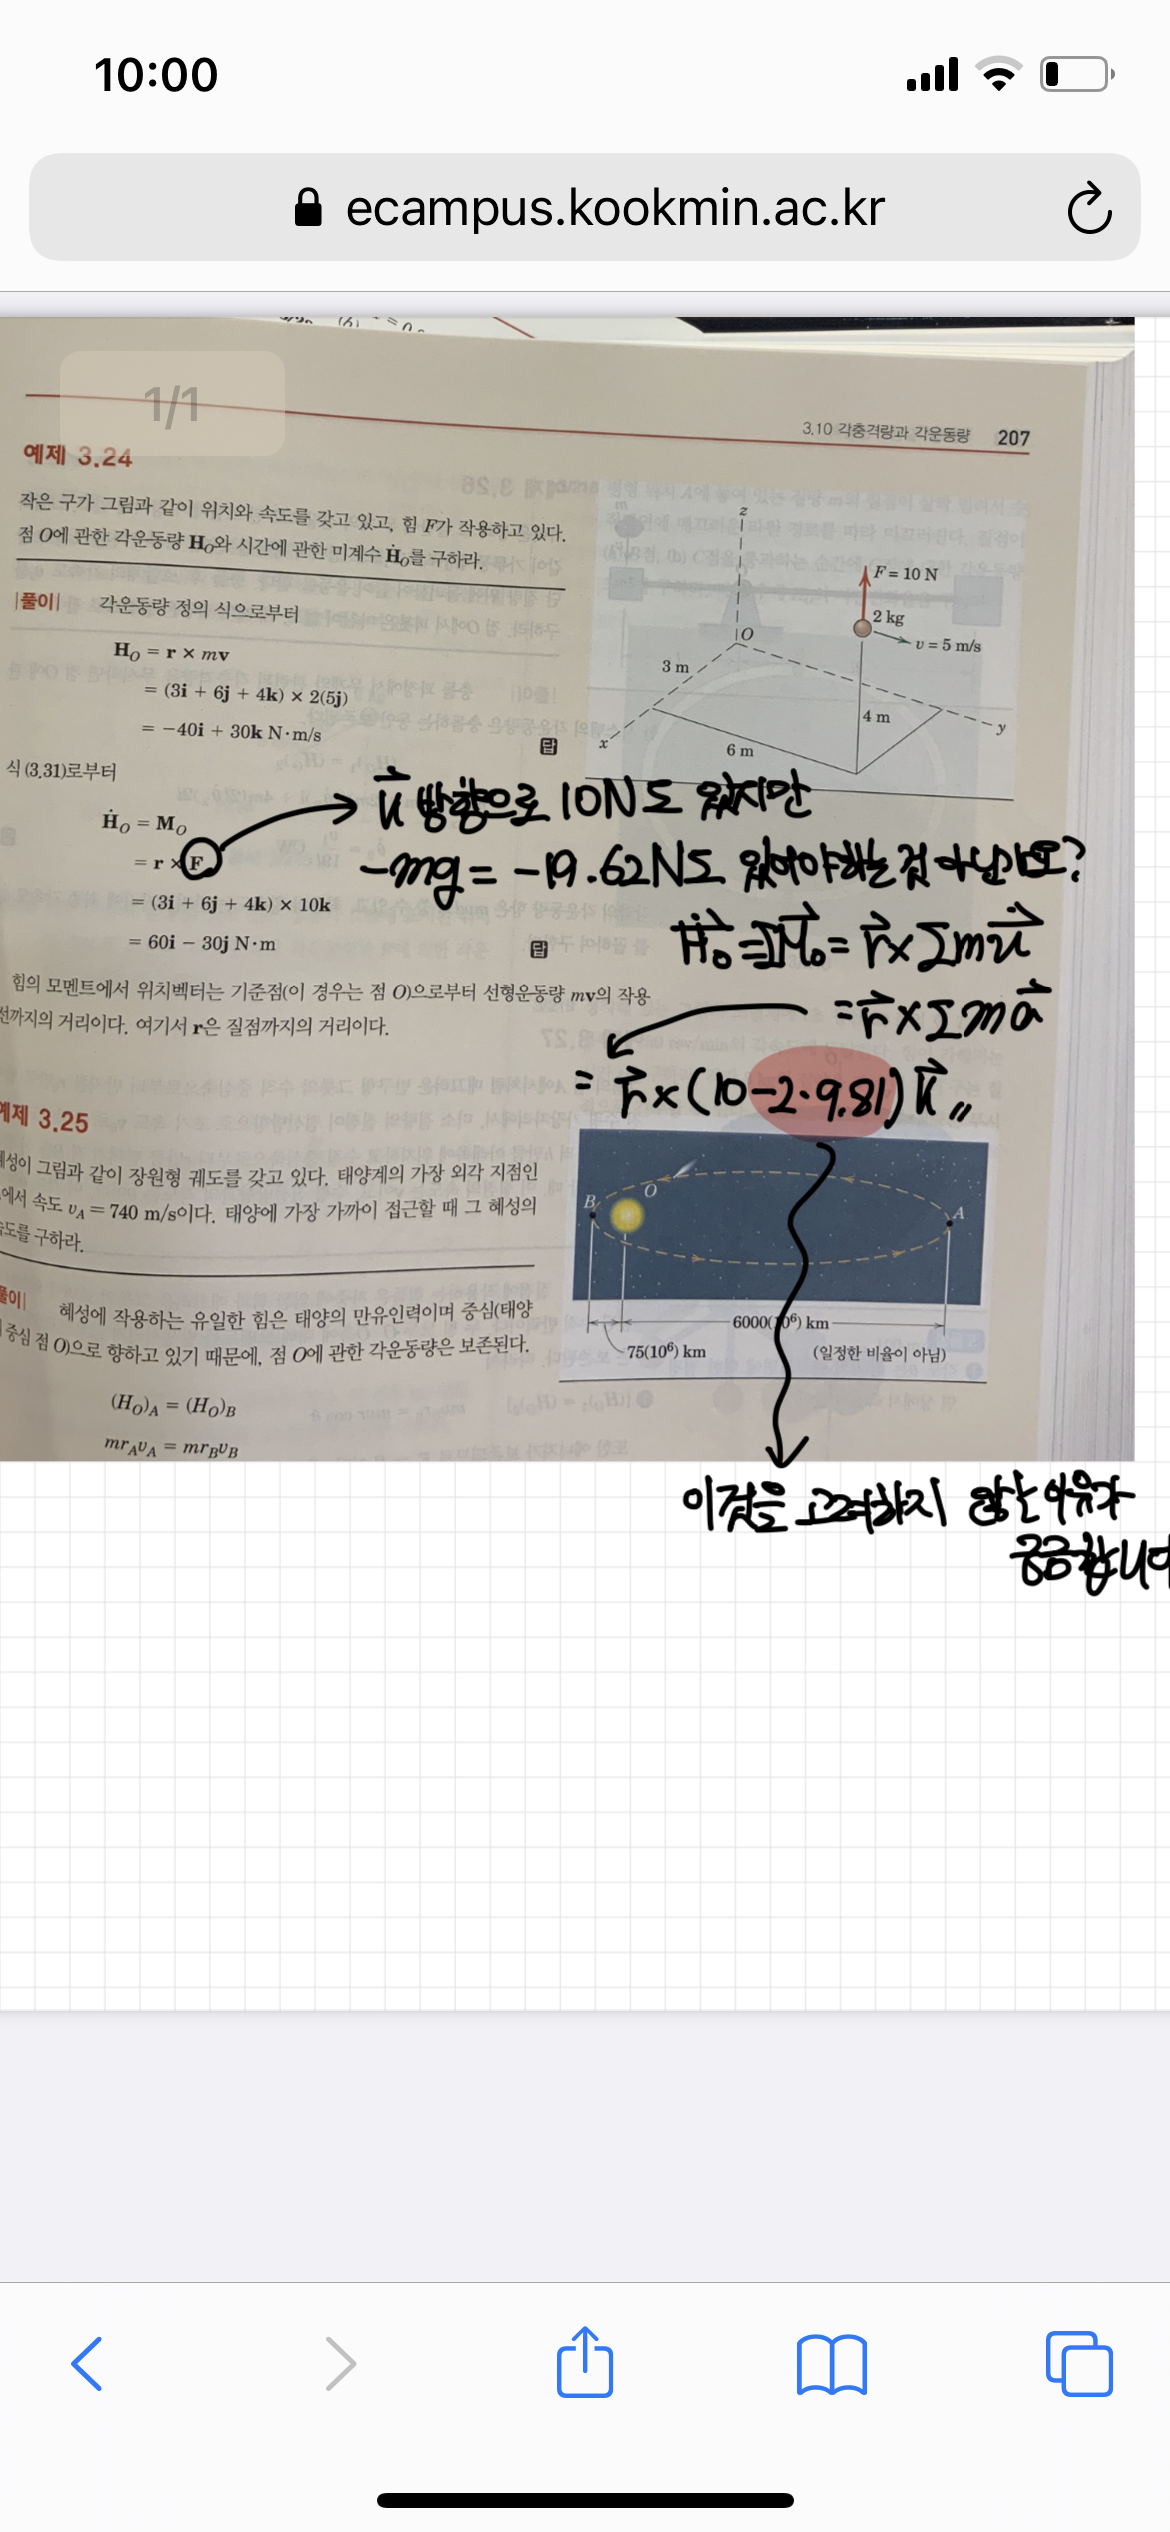 10:00
ecampus.kookmin.ac.kr
1/1
3.10 각충격량과 각운동량 207
예제 3.24
작은 구가 그림과 같이 위치와 속도를 갖고 있고, 힘 F가 작용하고 있다.
점 O에 관한 각운동량 H_O와 시간에 관한 미계수 Ḣ_O를 구하라.
|풀이| 각운동량 정의 식으로부터
H_O = r × mv
= (3i + 6j + 4k) × 2(5j)
= −40i + 30k N·m/s
답
식 (3.31)로부터
Ḣ_O = M_O
= r × F
= (3i + 6j + 4k) × 10k
= 60i − 30j N·m
답
힘의 모멘트에서 위치벡터는 기준점(이 경우는 점 O)으로부터 선형운동량 mv의 작용
선까지의 거리이다. 여기서 r은 질점까지의 거리이다.
z
F = 10 N
2 kg
O
v = 5 m/s
3 m
4 m
x
6 m
y
k⃗ 방향으로 10N도 있지만
-mg = -19.62N도 있어야하는 것 아닌가요?
= r⃗×Σma⃗
= r⃗×(10-2·9.81)k⃗ 〃
예제 3.25
혜성이 그림과 같이 장원형 궤도를 갖고 있다. 태양계의 가장 외각 지점인
에서 속도 v_A = 740 m/s이다. 태양에 가장 가까이 접근할 때 그 혜성의
속도를 구하라.
풀이| 혜성에 작용하는 유일한 힘은 태양의 만유인력이며 중심(태양
중심 점 O)으로 향하고 있기 때문에, 점 O에 관한 각운동량은 보존된다.
(H_O)_A = (H_O)_B
mr_Av_A = mr_Bv_B
B
O
A
6000(10⁶) km
75(10⁶) km
(일정한 비율이 아님)
이것을 고려하지 않는 이유가
궁금합니다